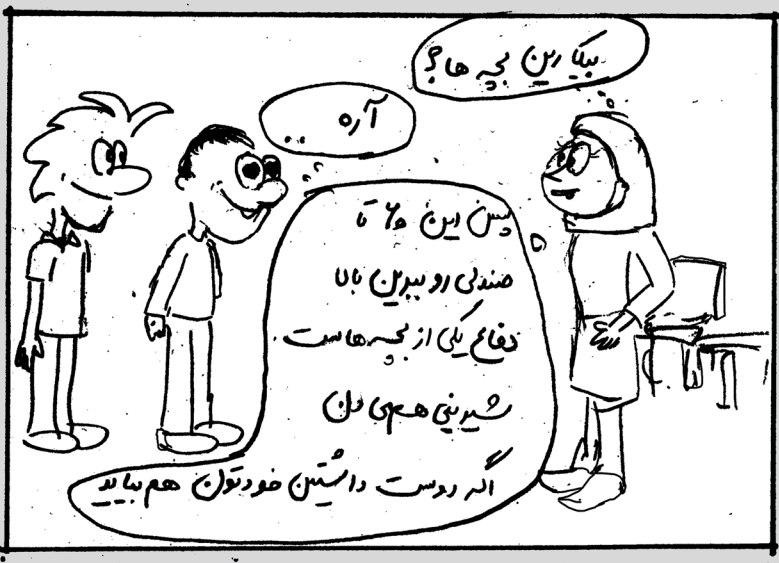 بیکارین بچه ها؟
آره
پس این ۶۵ تا
صندلی رو ببرین بالا
دفاع یکی از بچه هاست.
شیرینی هم می دن
اگه دوست داشتین خودتون هم بیاید